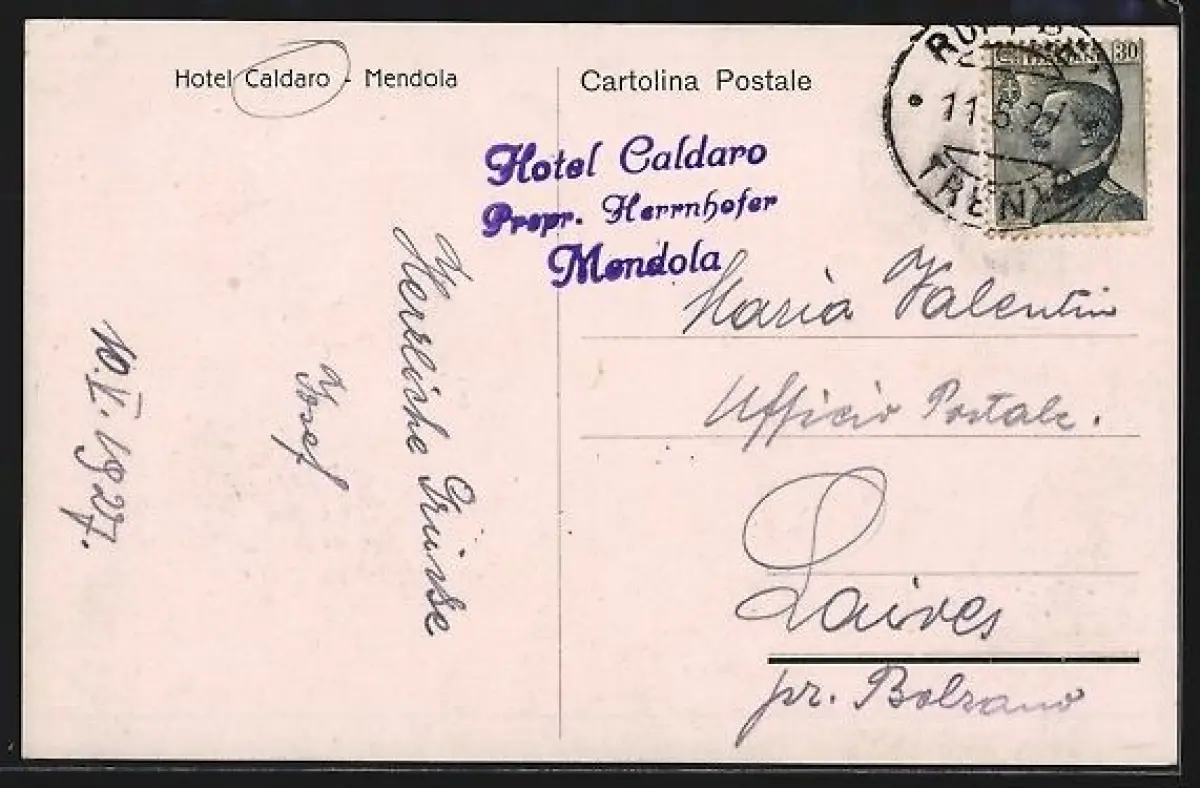 Hotel Caldaro - Mendola
Cartolina Postale
30
11.5.27
TRENTO
Hotel Caldaro
Propr. Herrnhofer
Mendola
Maria Valentin
Ufficio Postale.
Laives
pr. Bolzano
Herzliche Grüsse
Josef
10.V.1927.